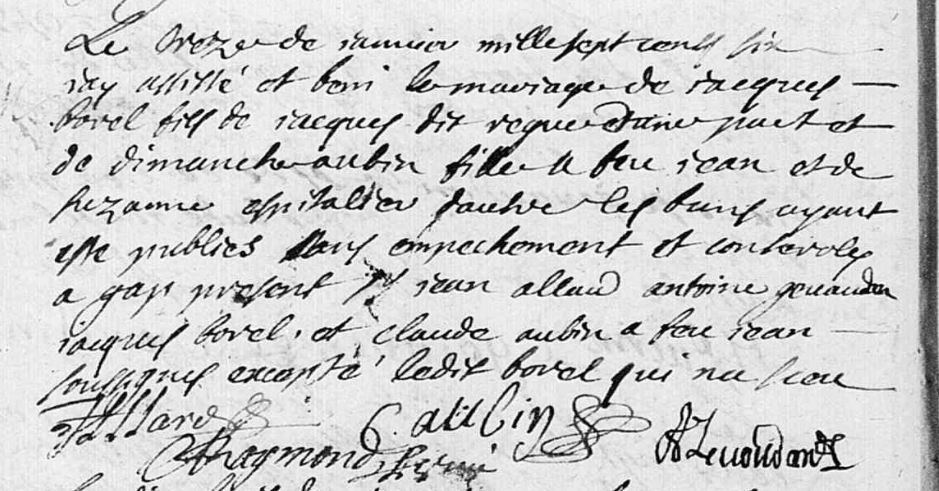 Le treze de janvier mille sept cents six
jay assisté et beni le mariage de jacques
borel fils de jacques dit regue d'une part et
de dimanche aubin fille a feu jean et de
suzanne espitallier d'autre les bans ayant
este publiés sans empechement et controles
a gap present Srs jean allard antoine gevaudan
jacques borel et claude aubin a feu jean
soussignes excepté ledit borel qui na sceu
J allard C. aubin A Gevoudan
Raymond